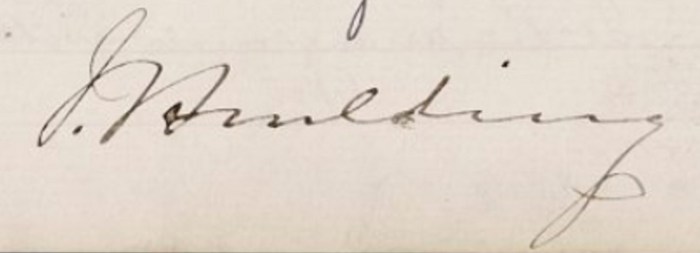 J. Paulding